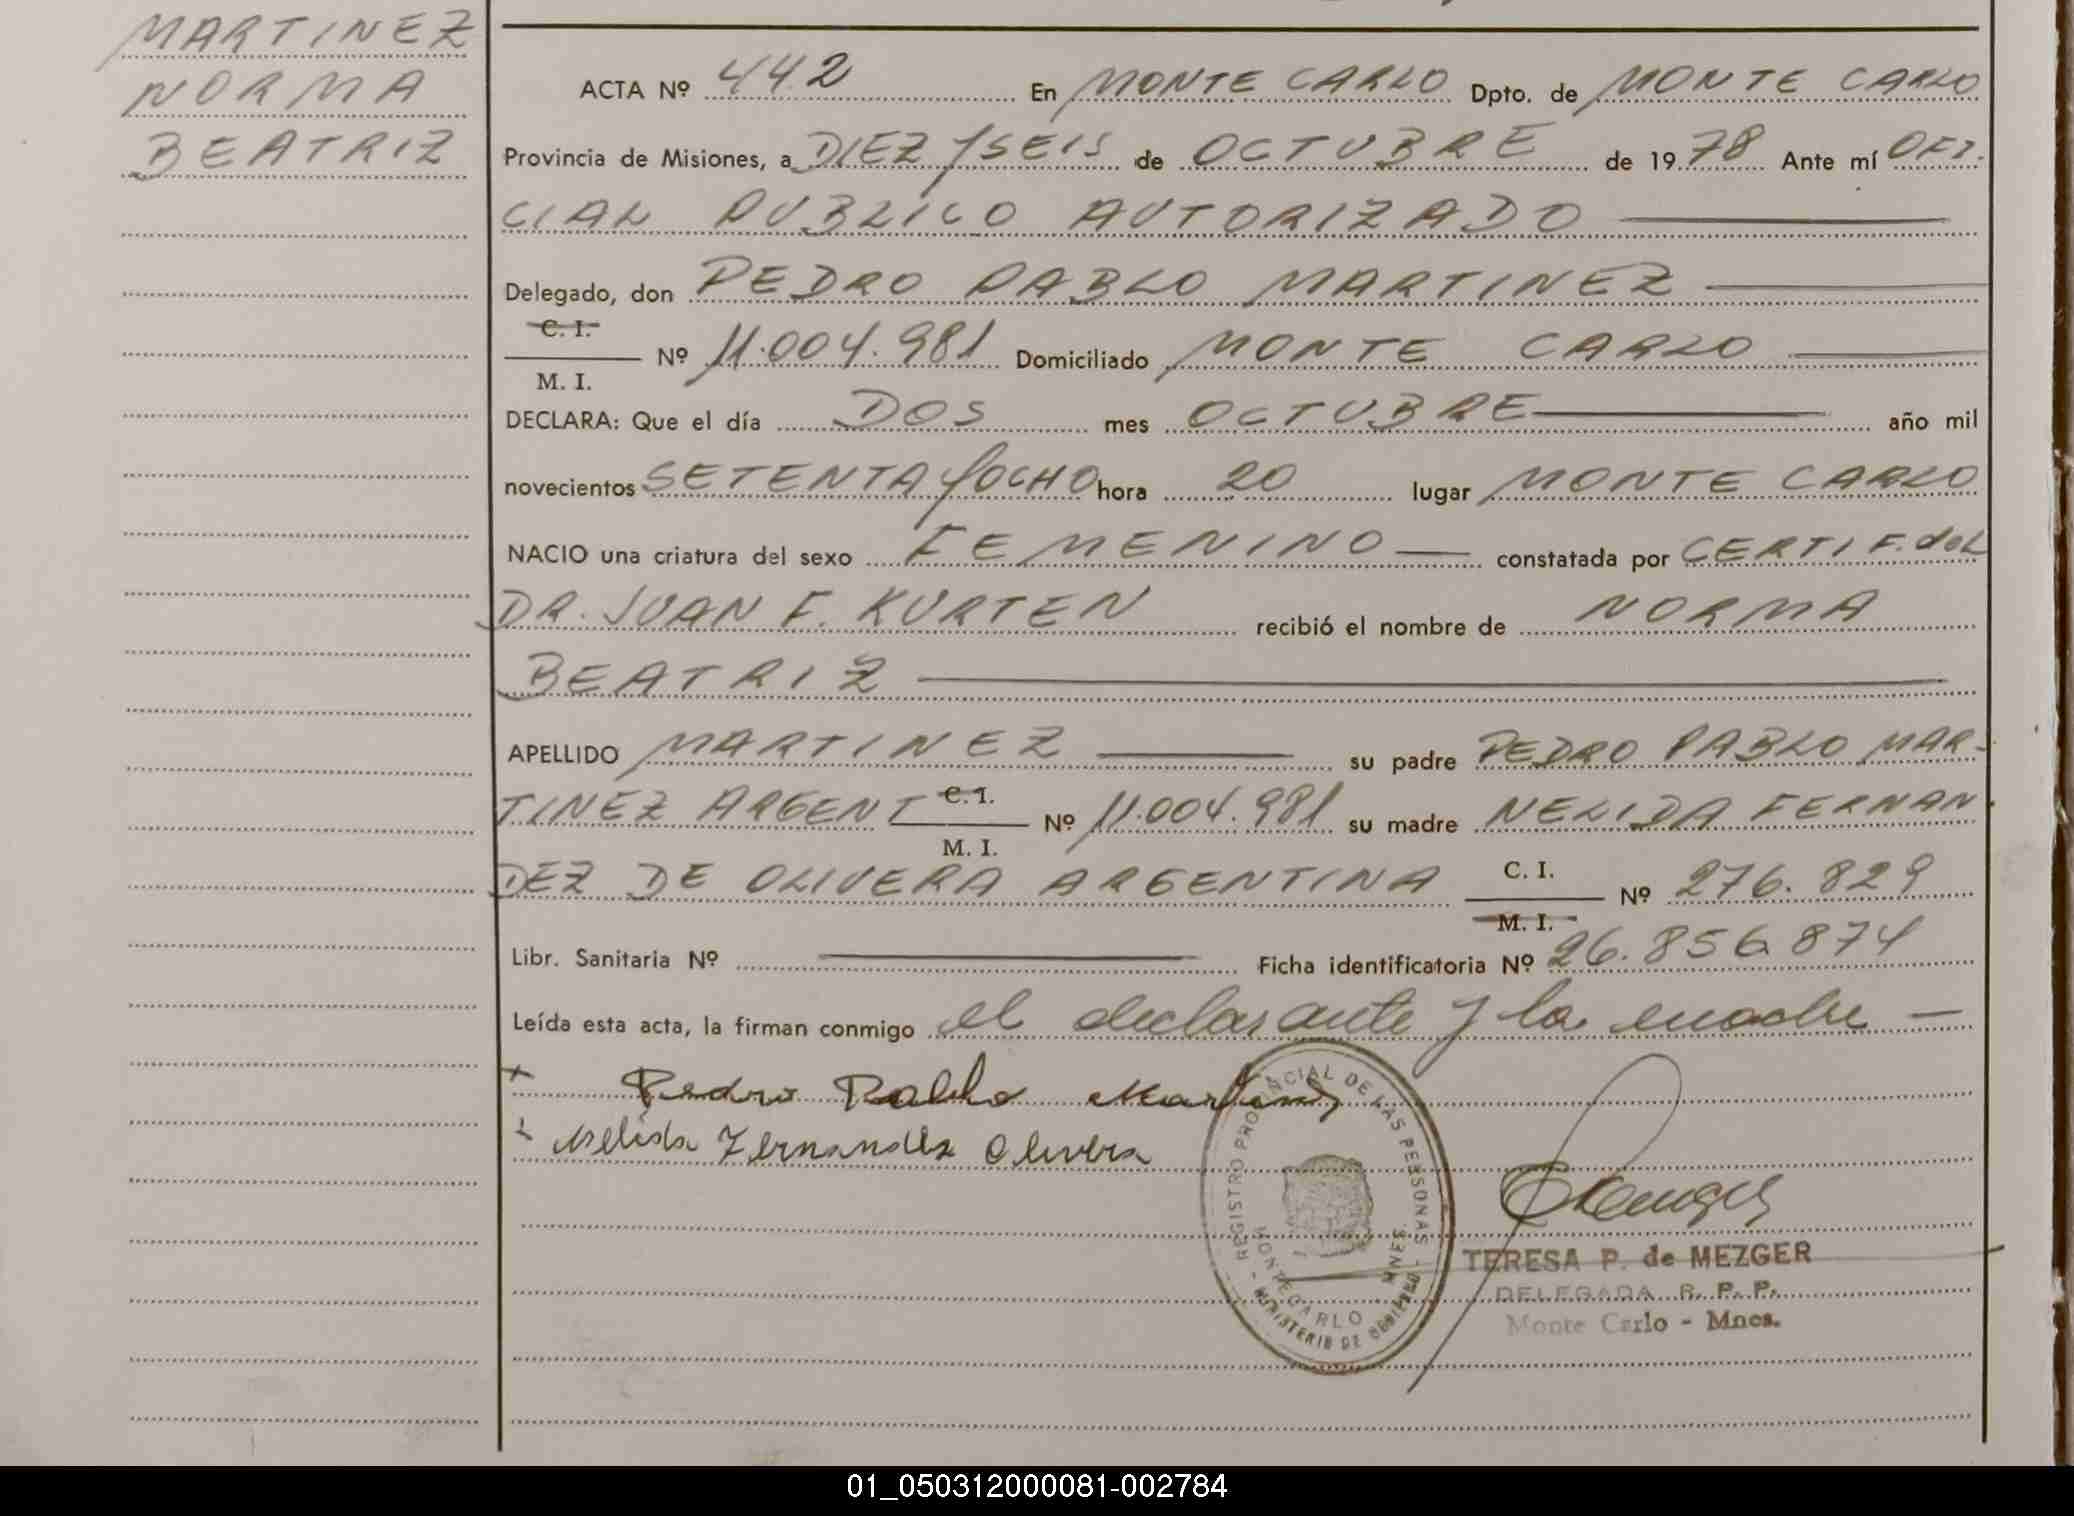 MARTINEZ
NORMA
BEATRIZ
ACTA Nº 442 En MONTE CARLO Dpto. de MONTE CARLO
Provincia de Misiones, a DIEZ Y SEIS de OCTUBRE de 1978 Ante mí OFI-
CIAL PUBLICO AUTORIZADO
Delegado, don PEDRO PABLO MARTINEZ
C. I.
Nº 11.004.981 Domiciliado MONTE CARLO
M. I.
DECLARA: Que el día DOS mes OCTUBRE año mil
novecientos SETENTA Y OCHO hora 20 lugar MONTE CARLO
NACIO una criatura del sexo FEMENINO constatada por CERTIF. del
DR. JUAN F. KURTEN recibió el nombre de NORMA
BEATRIZ
APELLIDO MARTINEZ su padre PEDRO PABLO MAR-
TINEZ ARGENT C. I. Nº 11.004.981 su madre NELIDA FERNAN
M. I.
DEZ DE OLIVERA ARGENTINA C. I. Nº 276.829
M. I.
Libr. Sanitaria Nº Ficha identificatoria Nº 26.856.874
Leída esta acta, la firman conmigo el declarante y la madre
Pedro Pablo Martinez
Nelida Fernandez Olivera
REGISTRO PROVINCIAL DE LAS PERSONAS
MONTECARLO - MNES.
MINISTERIO DE GOBIERNO
TERESA P. de MEZGER
DELEGADA R. P. P.
Monte Carlo - Mnes.
01_050312000081-002784